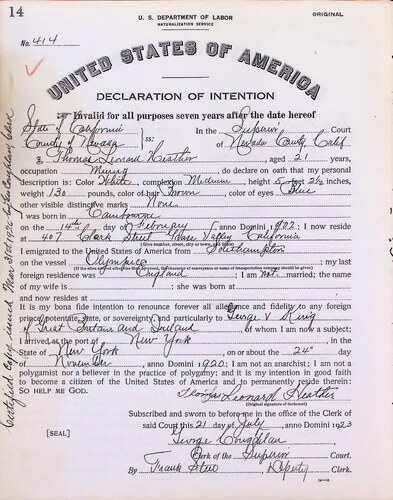 14
U. S. DEPARTMENT OF LABOR
NATURALIZATION SERVICE
ORIGINAL
No. 414
UNITED STATES OF AMERICA
DECLARATION OF INTENTION
Invalid for all purposes seven years after the date hereof
State of California
County of Nevada ss: In the Superior Court
of Nevada County, Calif
I, Thomas Leonard Heather, aged 21 years,
occupation Mining, do declare on oath that my personal
description is: Color White, complexion Medium, height 5 feet 2½ inches,
weight 130 pounds, color of hair Brown, color of eyes Blue
other visible distinctive marks None
I was born in Cambourne
on the 14th day of February, anno Domini 1902; I now reside
at 407 Clark Street Grass Valley California
(Give number, street, city or town, and State)
I emigrated to the United States of America from Southampton
on the vessel Olympic; my last
(If the alien arrived otherwise than by vessel, the character of conveyance or name of transportation company should be given)
foreign residence was England; I am not married; the name
of my wife is; she was born at
and now resides at
It is my bona fide intention to renounce forever all allegiance and fidelity to any foreign
prince, potentate, state, or sovereignty, and particularly to George V King
of Great Britain and Ireland, of whom I am now a subject;
I arrived at the port of New York, in the
State of New York, on or about the 24 day
of November, anno Domini 1920; I am not an anarchist; I am not a
polygamist nor a believer in the practice of polygamy; and it is my intention in good faith
to become a citizen of the United States of America and to permanently reside therein:
SO HELP ME GOD.
Thomas Leonard Heather
(Original signature of declarant)
Subscribed and sworn to before me in the office of the Clerk of
said Court this 21 day of July, anno Domini 1923
[SEAL]
George Coughlan
Clerk of the Superior Court.
By Frank Steel Deputy Clerk.
Certified Copy issued Mar 31st 1926 by Geo Coughlan Clerk